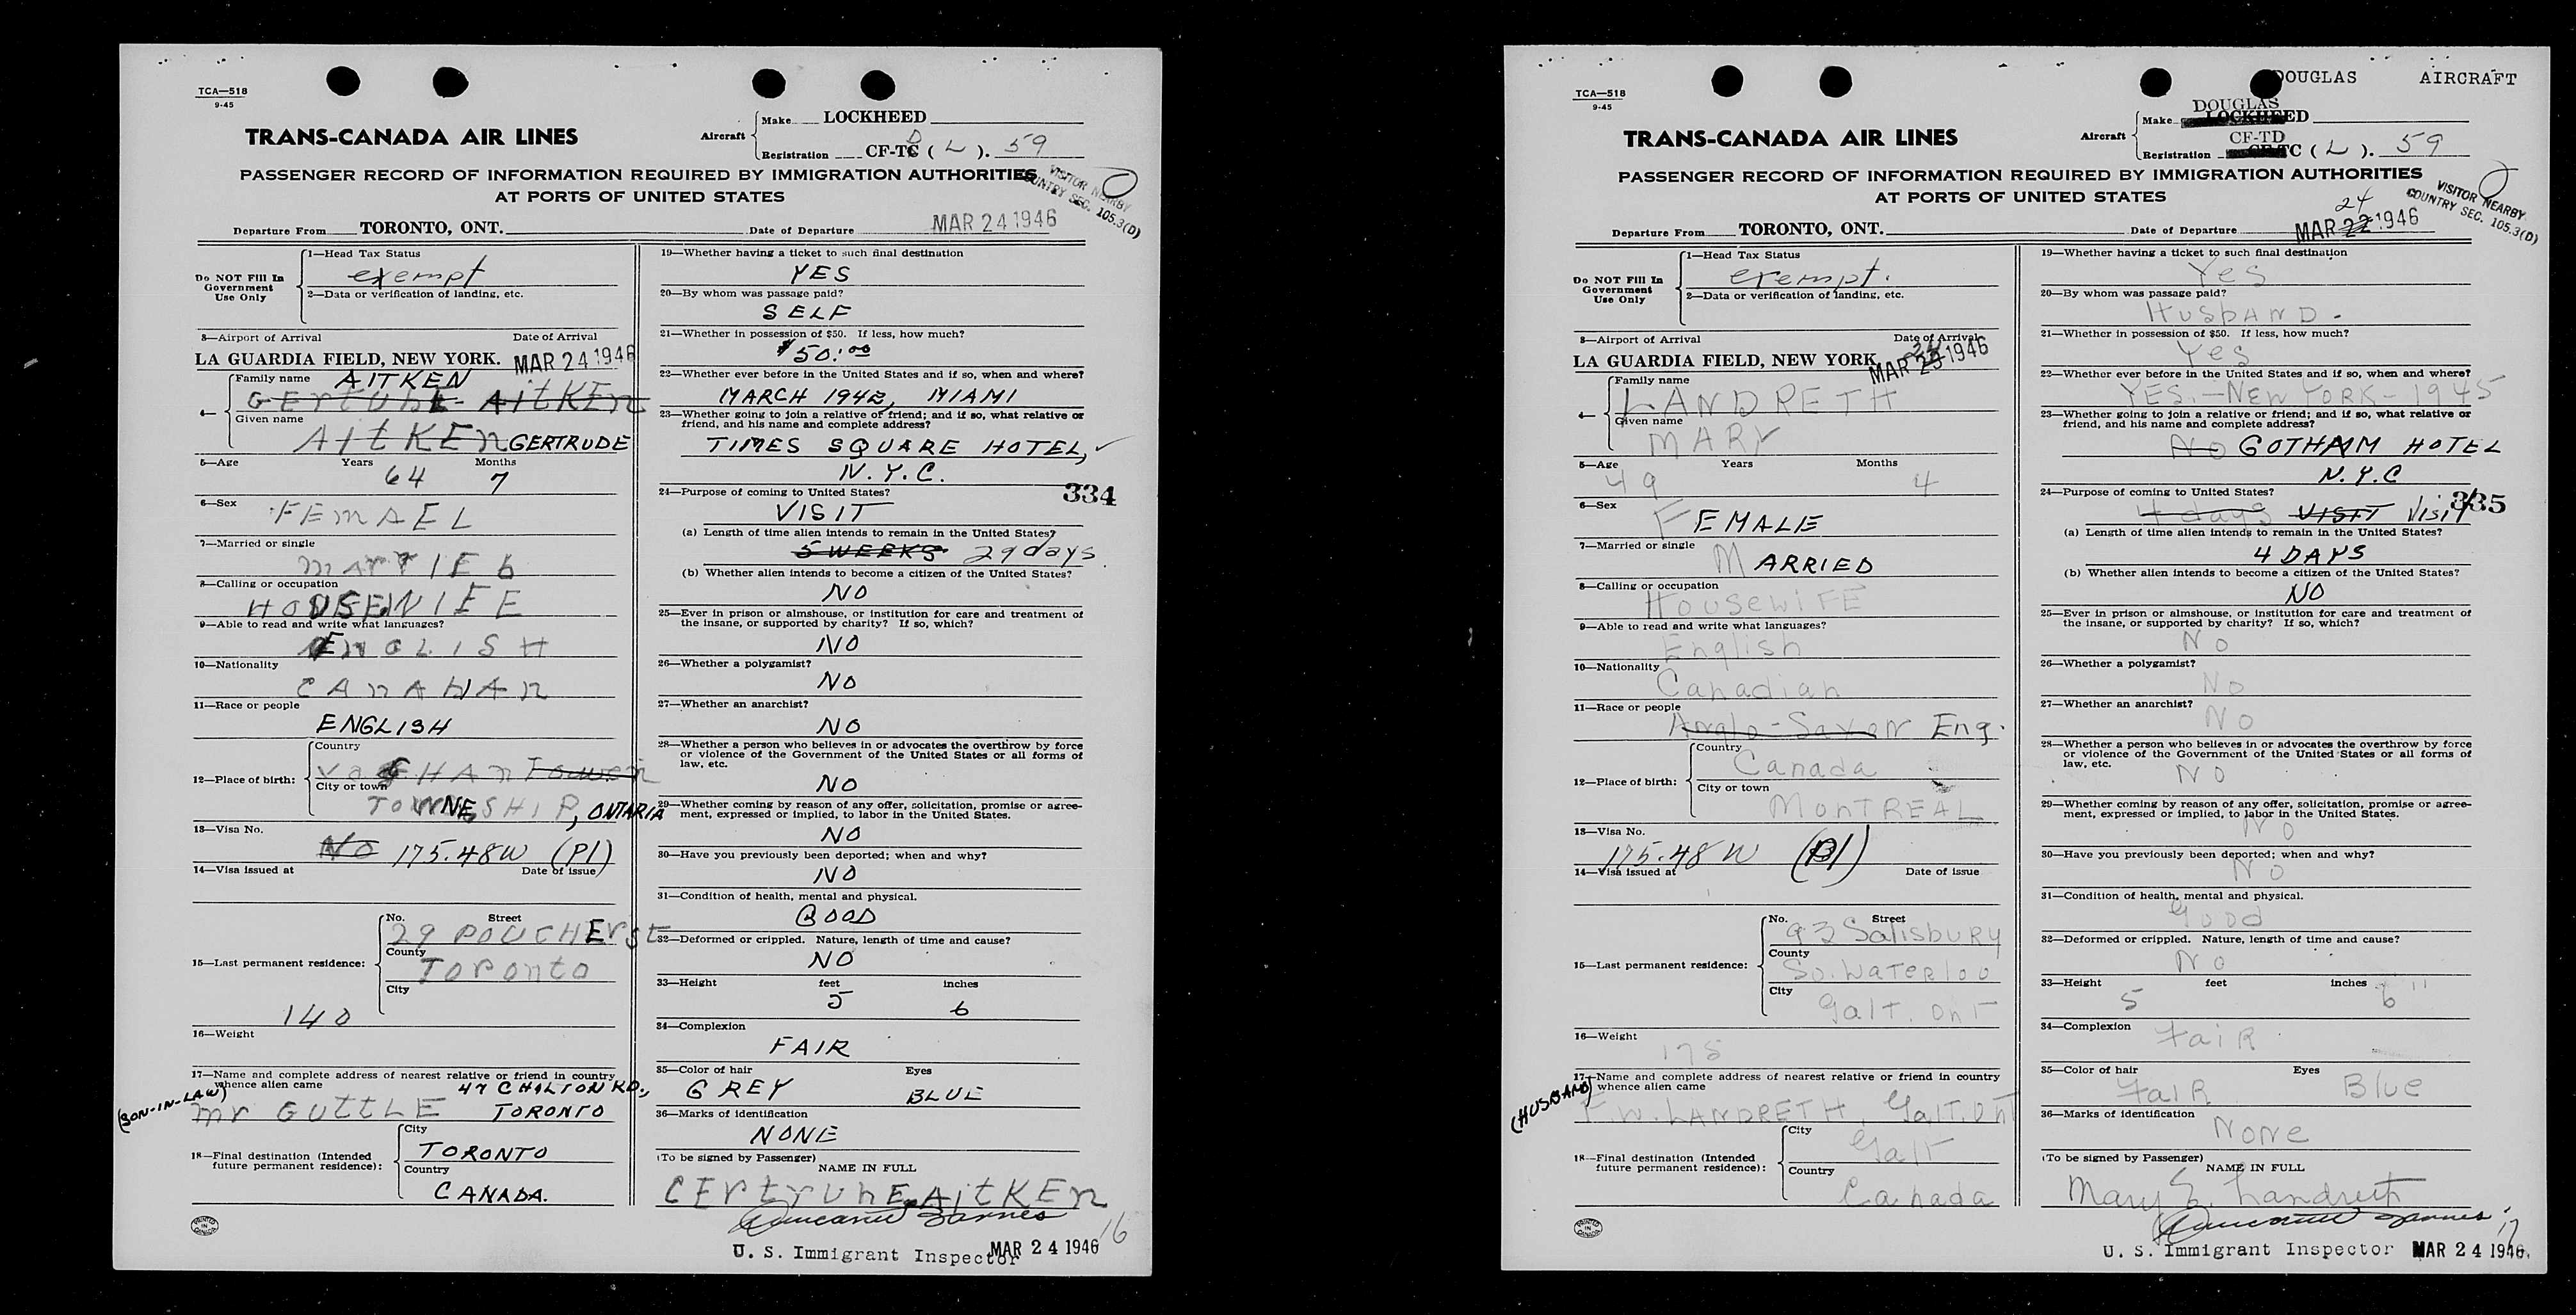 TCA—518
9-45
TRANS-CANADA AIR LINES
Aircraft
Make LOCKHEED
Registration CF-TC ( L ). 59
D
PASSENGER RECORD OF INFORMATION REQUIRED BY IMMIGRATION AUTHORITIES
AT PORTS OF UNITED STATES
VISITOR NEARBY
COUNTRY SEC. 105.3(D)
Departure From TORONTO, ONT. Date of Departure MAR 24 1946
Do NOT Fill In
Government
Use Only
1—Head Tax Status
exempt
2—Data or verification of landing, etc.
3—Airport of Arrival Date of Arrival
LA GUARDIA FIELD, NEW YORK. MAR 24 1946
4—
Family name AITKEN
GErtuhE AitKEn
Given name
AitKEn GERTRUDE
5—Age Years Months
64 7
6—Sex
FEmAEL
7—Married or single
mArrIEb
8—Calling or occupation
HOUSEWIFE
9—Able to read and write what languages?
EnGLISH
10—Nationality
CAnAHAn
11—Race or people
ENGLISH
12—Place of birth:
Country
VaGHAn Town
City or town
TOWNESHIP, ONTARIA
13—Visa No.
No 175.48W (P1)
14—Visa issued at Date of issue
15—Last permanent residence:
No. Street
29 POUCHEr St
County
Toronto
City
140
16—Weight
17—Name and complete address of nearest relative or friend in country
whence alien came 47 CHILTON RD.,
(SON-IN-LAW) mr GUttLE TORONTO
18—Final destination (Intended
future permanent residence):
City
TORONTO
Country
CANADA.
PRINTED IN CANADA
19—Whether having a ticket to such final destination
YES
20—By whom was passage paid?
SELF
21—Whether in possession of $50. If less, how much?
$50.00
22—Whether ever before in the United States and if so, when and where?
MARCH 1942, MIAMI
23—Whether going to join a relative or friend; and if so, what relative or
friend, and his name and complete address?
TIMES SQUARE HOTEL,
N.Y.C.
334
24—Purpose of coming to United States?
VISIT
(a) Length of time alien intends to remain in the United States?
5 WEEKS 29 days
(b) Whether alien intends to become a citizen of the United States?
NO
25—Ever in prison or almshouse, or institution for care and treatment of
the insane, or supported by charity? If so, which?
NO
26—Whether a polygamist?
NO
27—Whether an anarchist?
NO
28—Whether a person who believes in or advocates the overthrow by force
or violence of the Government of the United States or all forms of
law, etc.
NO
29—Whether coming by reason of any offer, solicitation, promise or agree-
ment, expressed or implied, to labor in the United States.
NO
30—Have you previously been deported; when and why?
NO
31—Condition of health, mental and physical.
GOOD
32—Deformed or crippled. Nature, length of time and cause?
NO
33—Height feet inches
5 6
34—Complexion
FAIR
35—Color of hair Eyes
GREY BLUE
36—Marks of identification
NONE
(To be signed by Passenger)
NAME IN FULL
CErtruhE AitKEn
16
U. S. Immigrant Inspector MAR 24 1946
DOUGLAS AIRCRAFT
TCA—518
9-45
TRANS-CANADA AIR LINES
Aircraft
DOUGLAS
Make LOCKHEED
CF-TD
Registration CF-TC ( L ). 59
PASSENGER RECORD OF INFORMATION REQUIRED BY IMMIGRATION AUTHORITIES
AT PORTS OF UNITED STATES
VISITOR NEARBY
COUNTRY SEC. 105.3(D)
24
Departure From TORONTO, ONT. Date of Departure MAR 22 1946
Do NOT Fill In
Government
Use Only
1—Head Tax Status
exempt.
2—Data or verification of landing, etc.
3—Airport of Arrival Date of Arrival
24
LA GUARDIA FIELD, NEW YORK MAR 23 1946
4—
Family name
LANDRETH
Given name
MARY
5—Age Years Months
49 4
6—Sex
FEMALE
7—Married or single
MARRIED
8—Calling or occupation
HousewiFE
9—Able to read and write what languages?
English
10—Nationality
Canadian
11—Race or people
Anglo-Saxon Eng.
12—Place of birth:
Country
Canada
City or town
MonTREAL
13—Visa No.
175.48 W (P1)
14—Visa issued at Date of issue
15—Last permanent residence:
No. Street
93 Salisbury
County
So. Waterloo
City
Galt. Ont
16—Weight
175
17—Name and complete address of nearest relative or friend in country
whence alien came
(HUSBAND) F.W. LANDRETH, Galt. Ont
18—Final destination (Intended
future permanent residence):
City
Galt
Country
Canada
PRINTED IN CANADA
19—Whether having a ticket to such final destination
Yes
20—By whom was passage paid?
HusbAND.
21—Whether in possession of $50. If less, how much?
Yes
22—Whether ever before in the United States and if so, when and where?
YES.—New York—1945
23—Whether going to join a relative or friend; and if so, what relative or
friend, and his name and complete address?
No GOTHAM HOTEL
N.Y.C
335
24—Purpose of coming to United States?
4 days VISIT Visit
(a) Length of time alien intends to remain in the United States?
4 DAYS
(b) Whether alien intends to become a citizen of the United States?
NO
25—Ever in prison or almshouse, or institution for care and treatment of
the insane, or supported by charity? If so, which?
No
26—Whether a polygamist?
No
27—Whether an anarchist?
No
28—Whether a person who believes in or advocates the overthrow by force
or violence of the Government of the United States or all forms of
law, etc.
No
29—Whether coming by reason of any offer, solicitation, promise or agree-
ment, expressed or implied, to labor in the United States.
No
30—Have you previously been deported; when and why?
No
31—Condition of health, mental and physical.
good
32—Deformed or crippled. Nature, length of time and cause?
No
33—Height feet inches
5 6"
34—Complexion
Fair
35—Color of hair Eyes
Fair Blue
36—Marks of identification
None
(To be signed by Passenger)
NAME IN FULL
Mary E. Landreth
17
U. S. Immigrant Inspector MAR 24 1946.